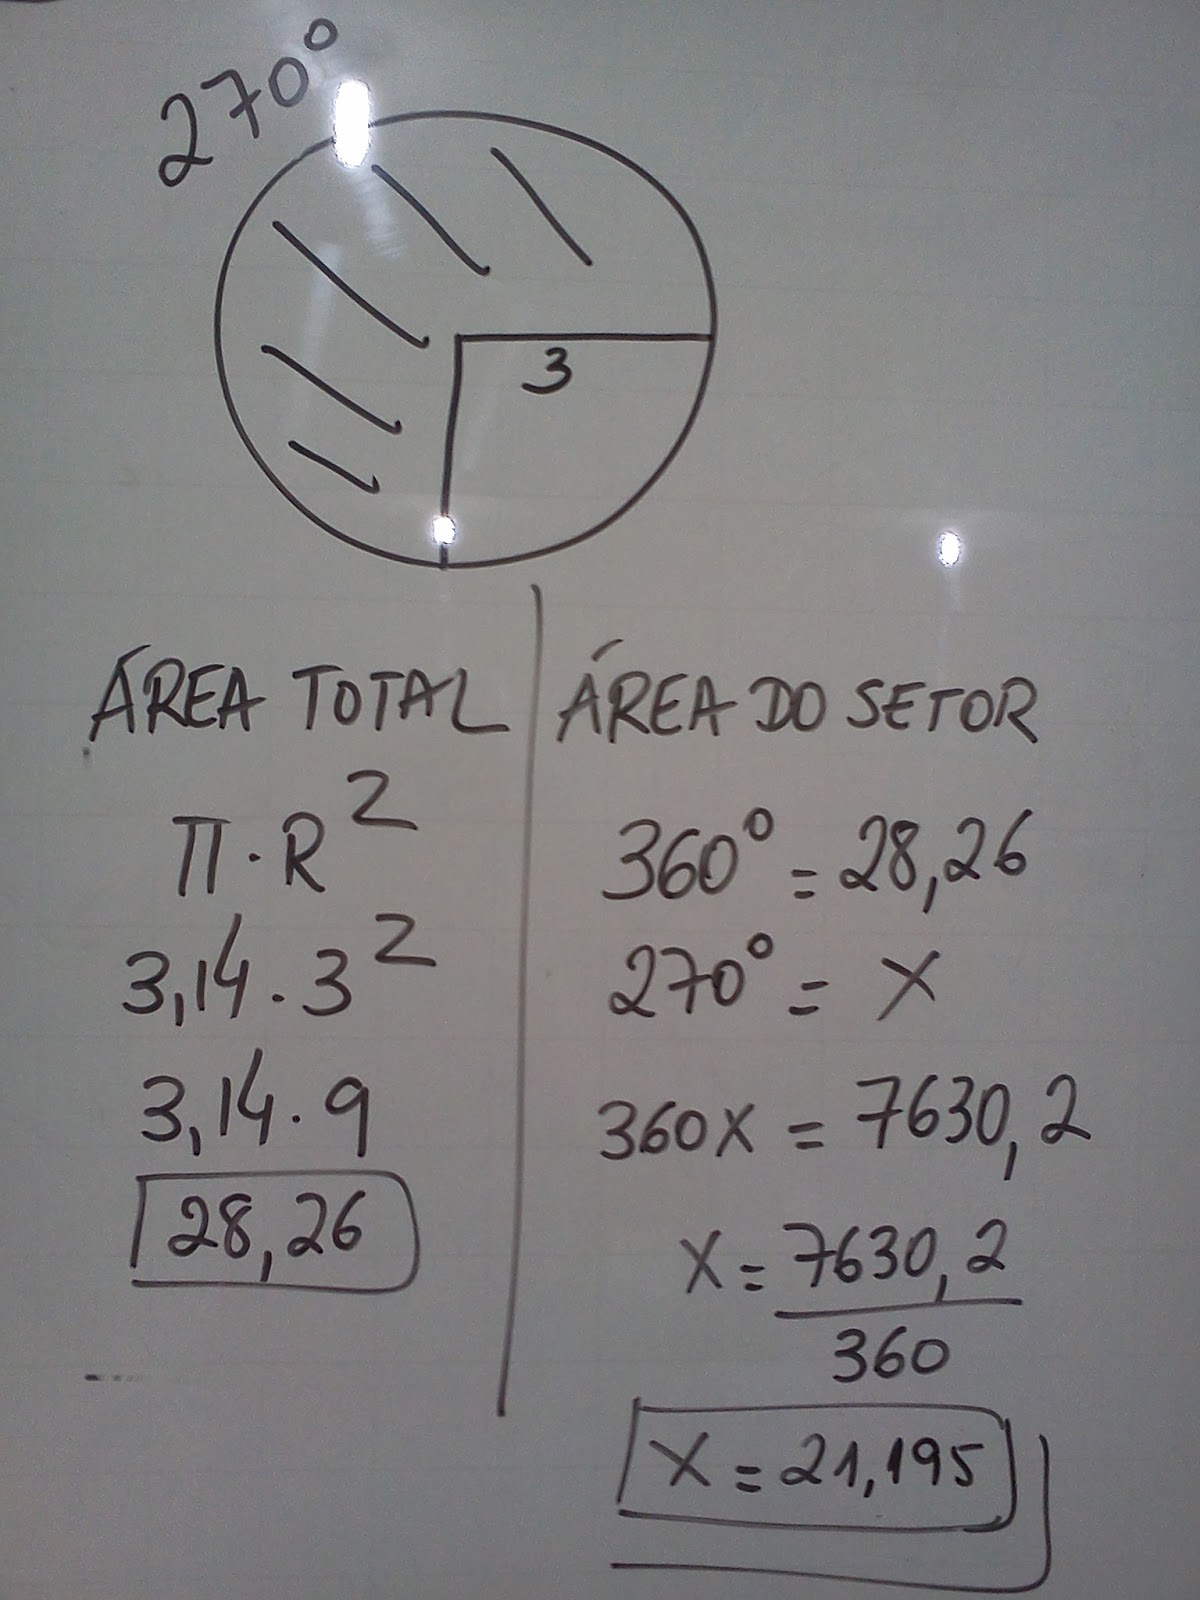 270°
3
ÁREA TOTAL
π·R²
3,14·3²
3,14·9
28,26
ÁREA DO SETOR
360° = 28,26
270° = X
360X = 7630,2
X = 7630,2
360
X = 21,195